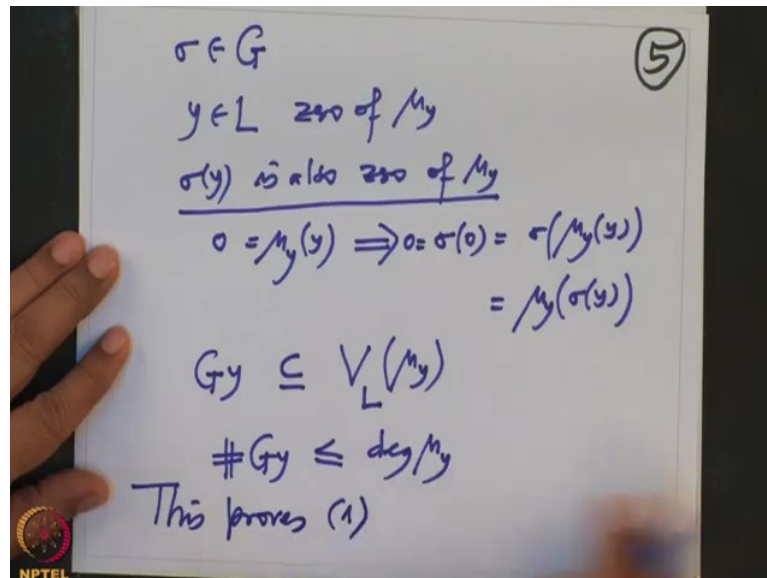 σ ∈ G
⑤
y ∈ L zero of μ_y
σ(y) is also zero of μ_y
0 = μ_y(y) ⟹ 0 = σ(0) = σ(μ_y(y))
= μ_y(σ(y))
Gy ⊆ V_L(μ_y)
#Gy ≤ deg μ_y
This proves (1)
NPTEL